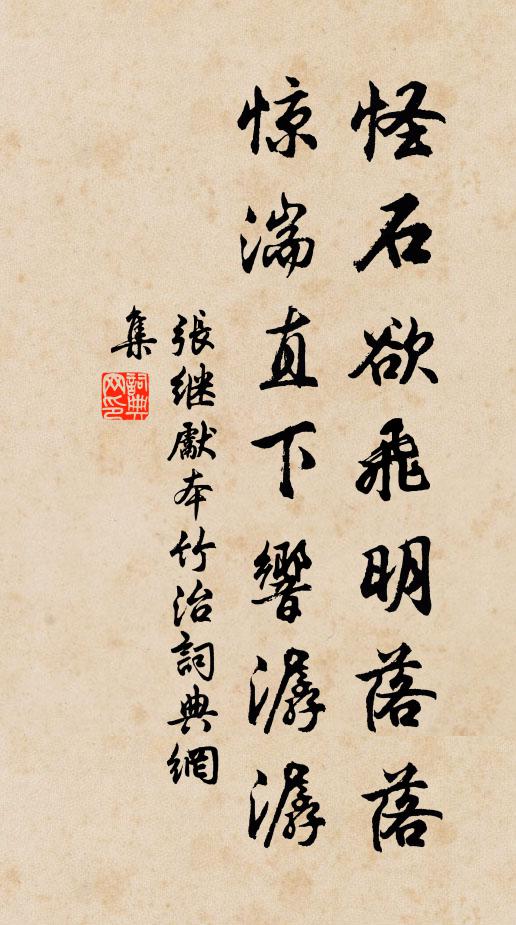 怪石欲飛明落落
惊湍直下響潺潺
張继獻本竹治詞典網
集
詞典
网印